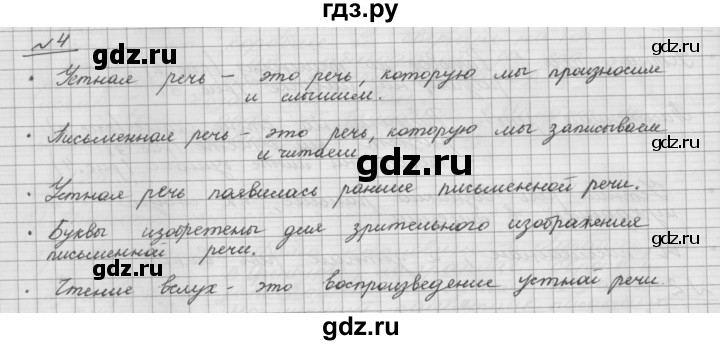 гдз.ру
№4
gdz.ru gdz.ru
• Устная речь – это речь, которую мы произносим
и слышим.
• Письменная речь – это речь, которую мы записываем
и читаем
gdz.ru
• Устная речь появилась раньше письменной речи.
• Буквы изобретены для зрительного изображения
письменной речи.
gdz.ru gdz.ru
• Чтение вслух – это воспроизведение устной речи.
gdz.ru